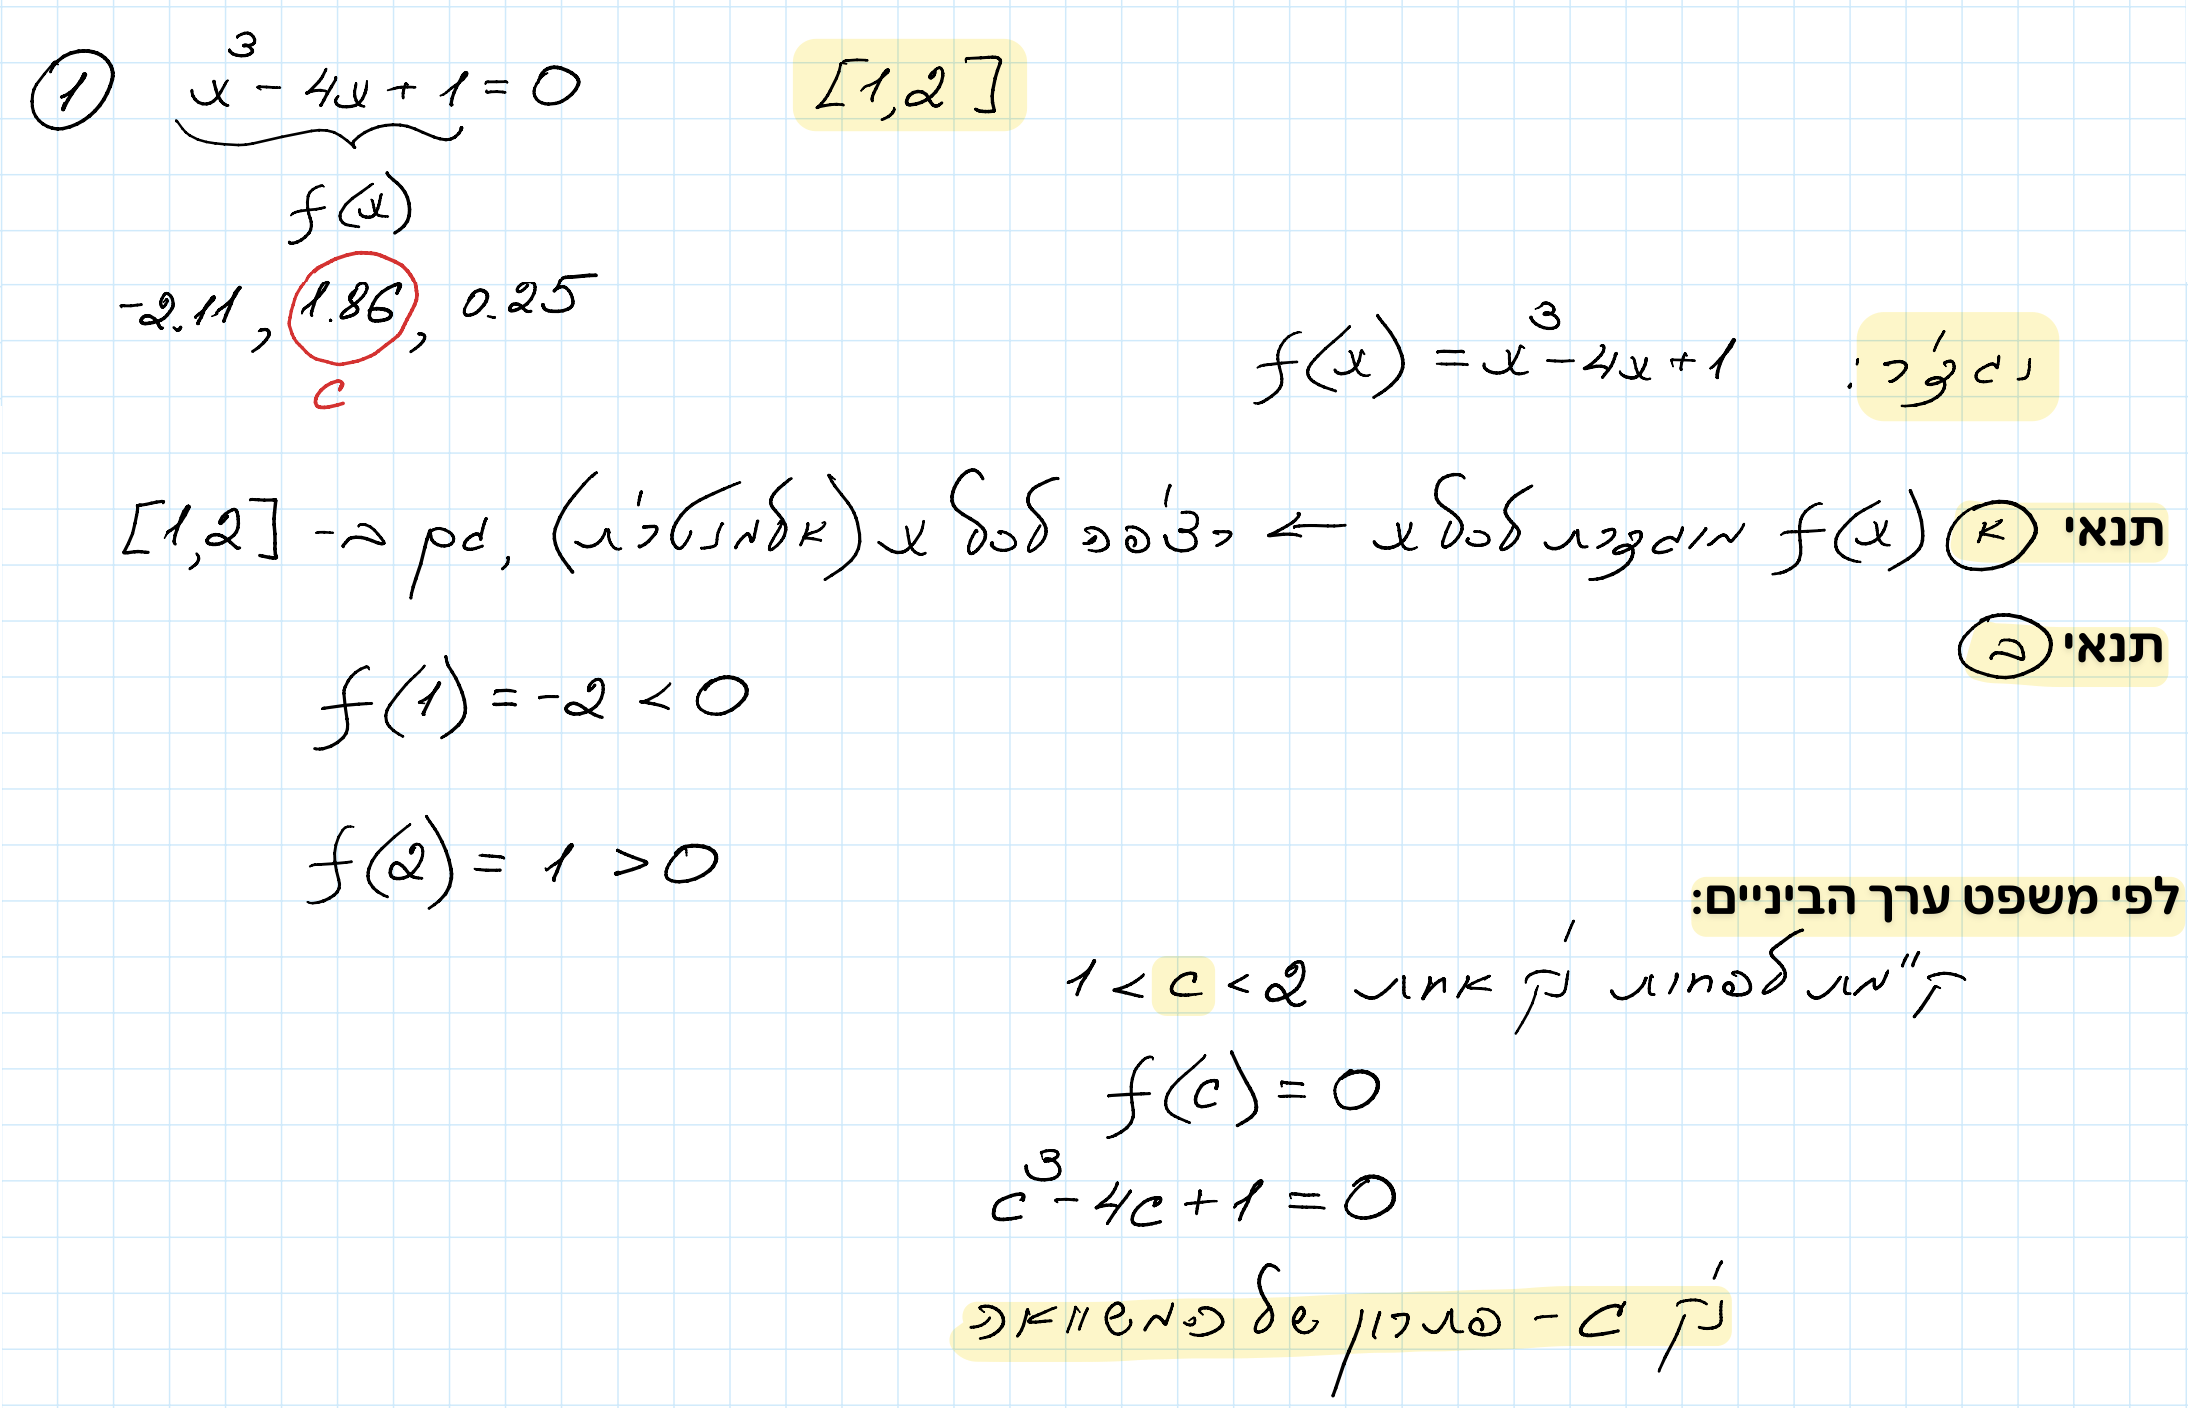 ① x³ - 4x + 1 = 0 [1,2]
f(x)
-2.11 , 1.86 , 0.25
c
נגדיר: f(x) = x³ - 4x + 1
תנאי א f(x) מוגדרת לכל x ← רציפה לכל x (אלמנטרית), גם ב- [1,2]
תנאי ב
f(1) = -2 < 0
f(2) = 1 > 0
לפי משפט ערך הביניים:
קיימת לפחות נק' אחת 1 < c < 2
f(c) = 0
c³ - 4c + 1 = 0
נק' c - פתרון של המשוואה